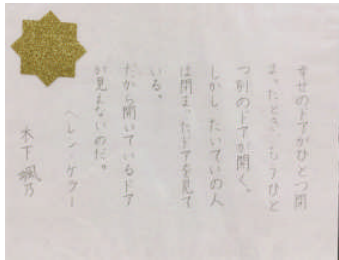 幸せのドアがひとつ閉
まったとき、もうひと
つ別のドアが開く。
しかし、たいていの人
は閉まったドアを見て
いる。
だから開いているドア
が見えないのだ。
ヘレン・ケラー
木下 颯乃